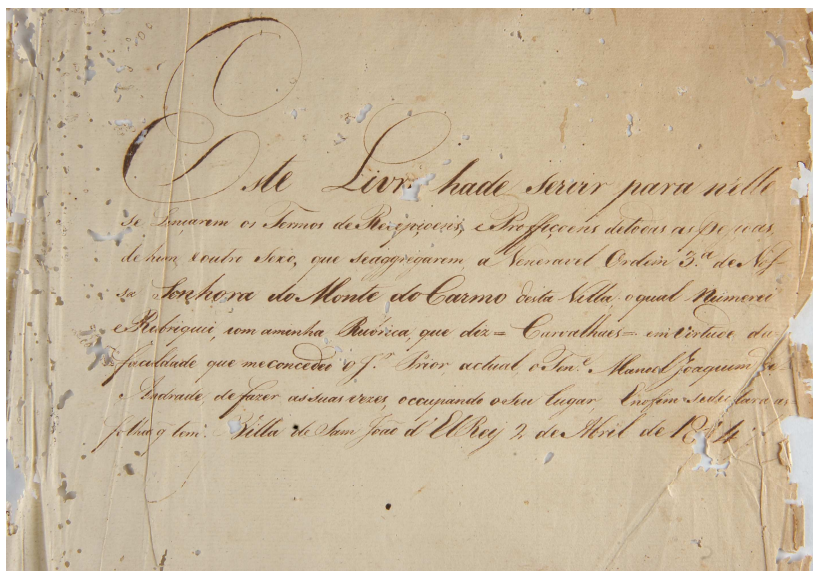 Este Livro hade servir para nelle
se lançarem os Termos de Recepçoens, e Proffiçoens detodas aspeçoas,
de hum, e outro Sexo, que seaggregarem a Veneravel Ordem 3.ª de Nos-
sa Senhora do Monte do Carmo desta Villa, o qual Numerei
e Rubriquei, com aminha Rubrica, que diz = Carvalhaes = em virtude da
faculdade que meconcedeu o Prior actual o Ten.e Manoel Joaquim de
Andrade, de fazer as suas vezes, occupando o seu lugar. Enofim sedeclara as
folhas q tem. Villa de Sam João d'ElRey 2 de Abril de 1814